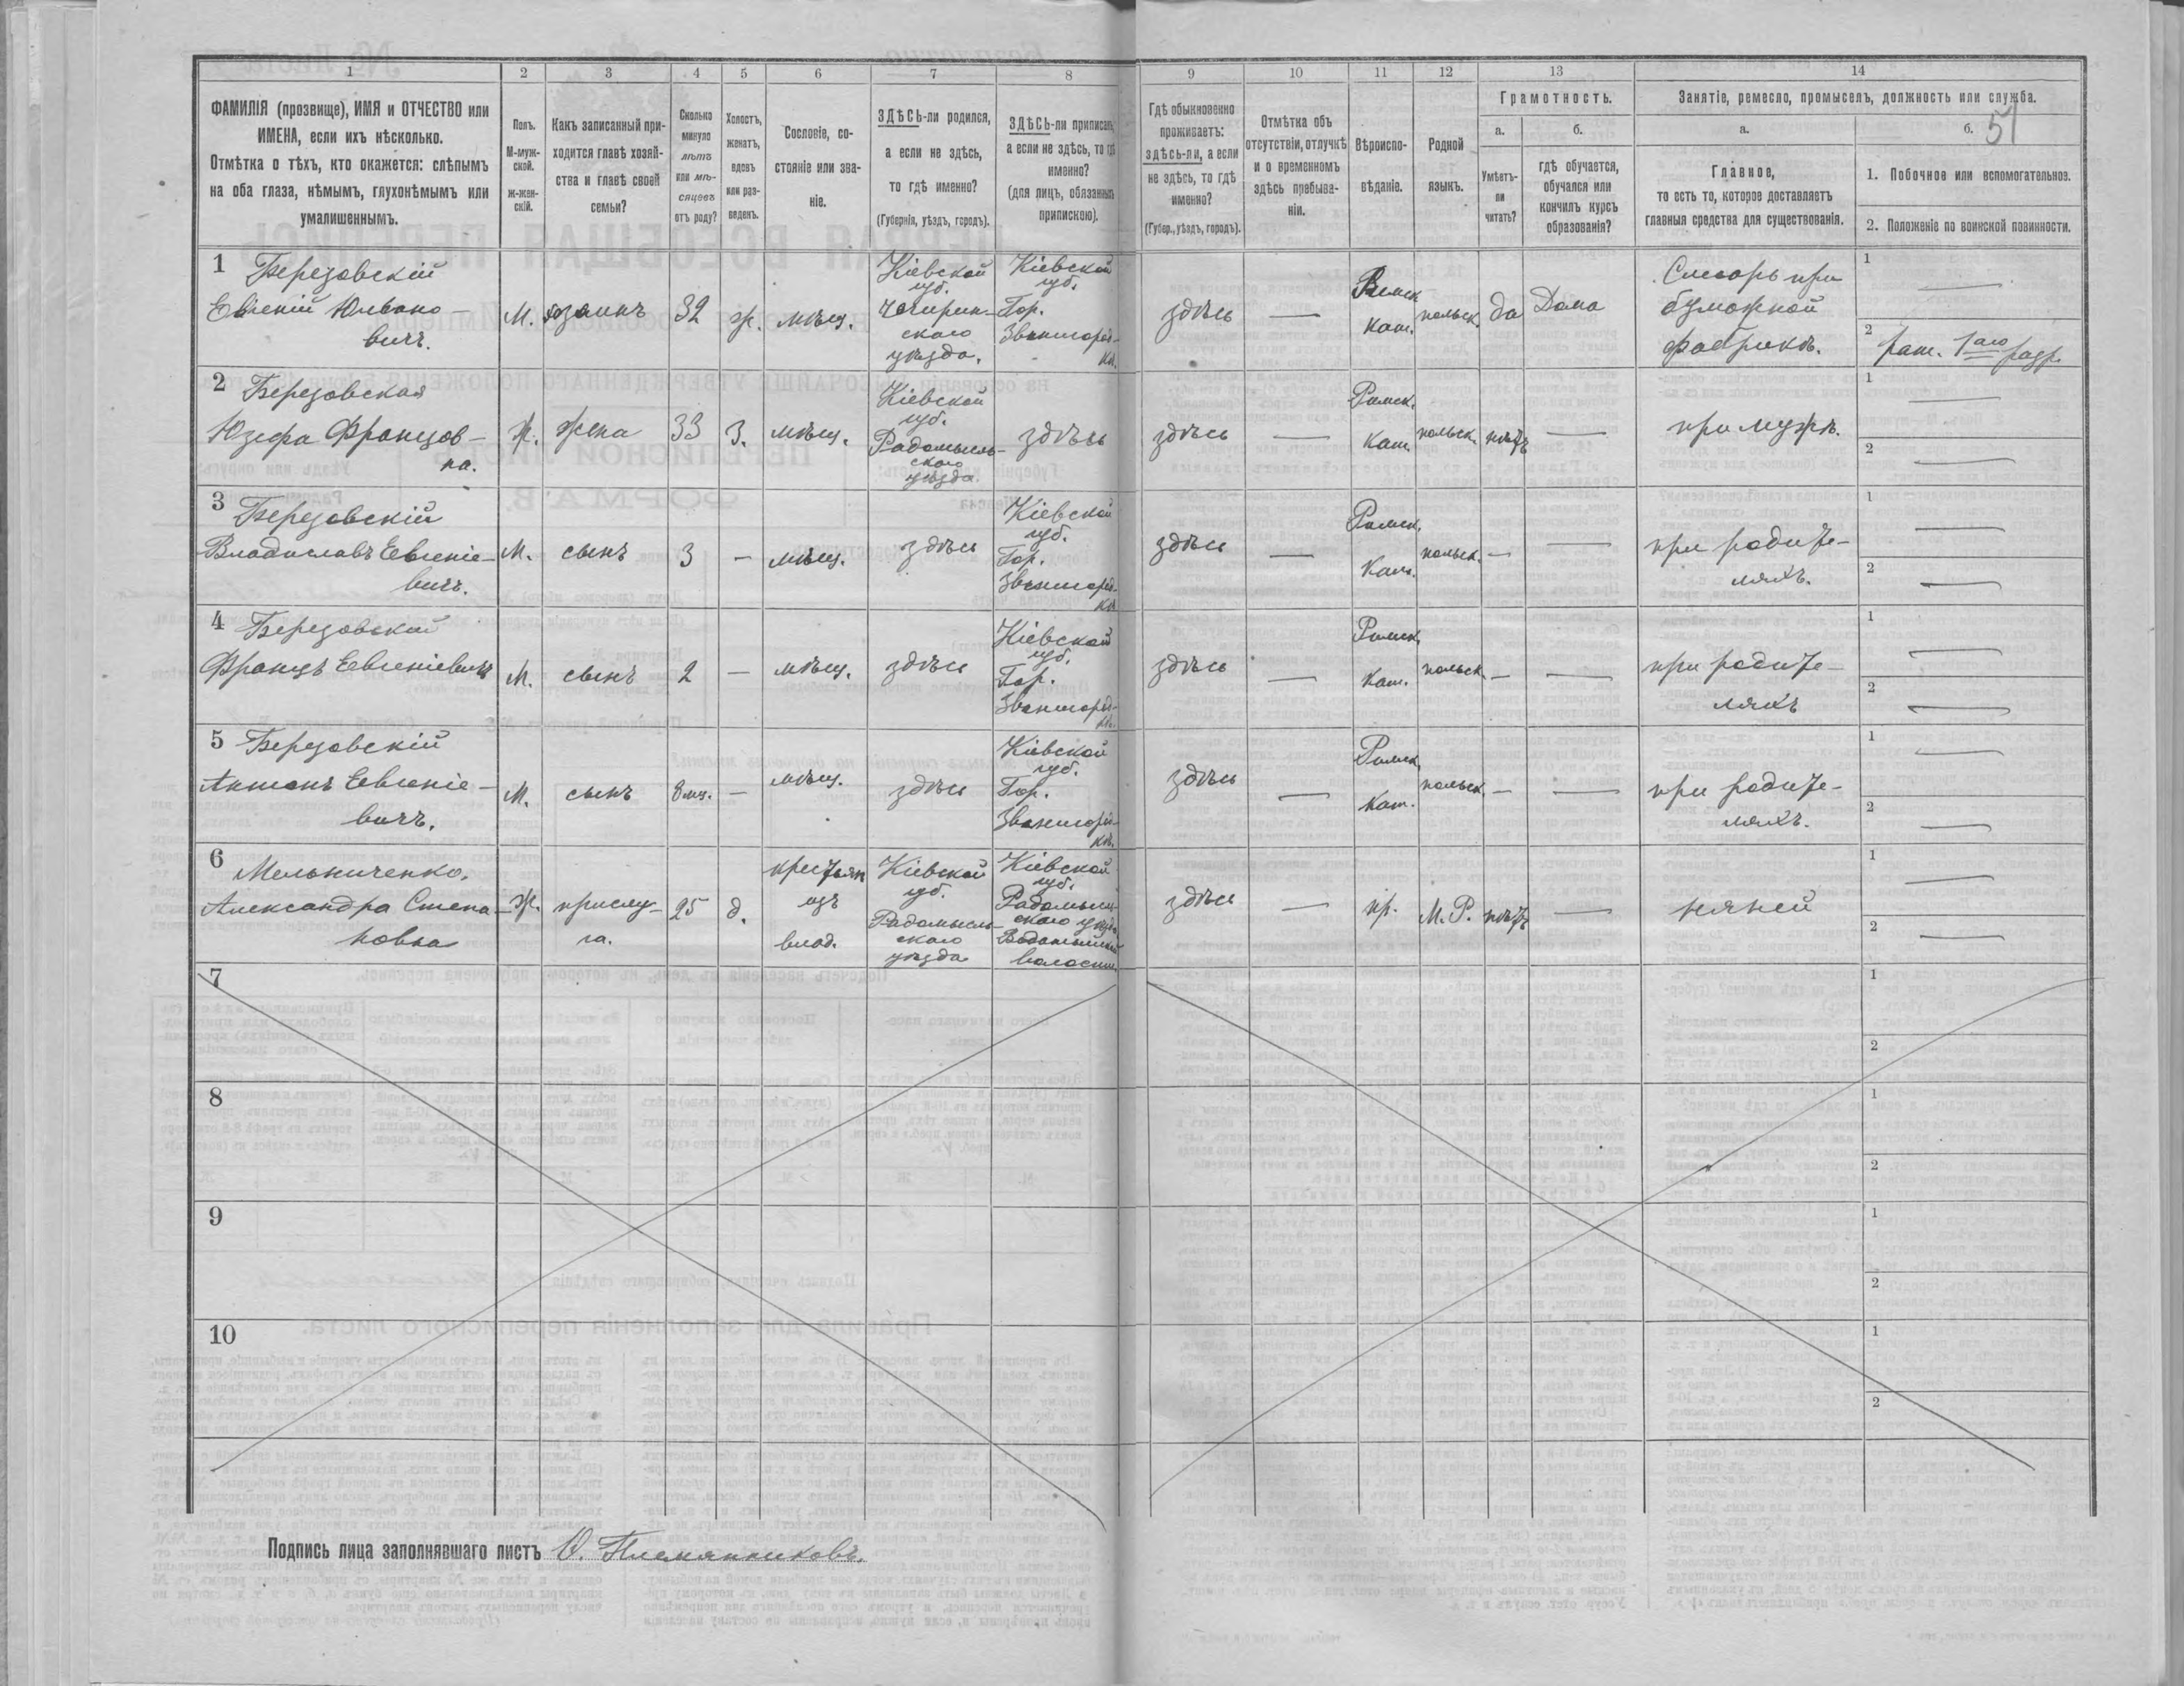 1
2
3
4
5
6
7
8
9
10
11
12
13
14
ФАМИЛІЯ (прозвище), ИМЯ и ОТЧЕСТВО или
ИМЕНА, если ихъ нѣсколько.
Отмѣтка о тѣхъ, кто окажется: слѣпымъ
на оба глаза, нѣмымъ, глухонѣмымъ или
умалишеннымъ.
Полъ.
М-муж-
ской.
Ж-жен-
скій.
Какъ записанный при-
ходится главѣ хозяй-
ства и главѣ своей
семьи?
Сколько
минуло
лѣтъ
или мѣ-
сяцевъ
отъ роду?
Холостъ,
женатъ,
вдовъ
или раз-
веденъ.
Сословіе, со-
стояніе или зва-
ніе.
ЗДѢСЬ-ли родился,
а если не здѣсь,
то гдѣ именно?
(Губернія, уѣздъ, городъ).
ЗДѢСЬ-ли приписанъ,
а если не здѣсь, то гдѣ
именно?
(для лицъ, обязанныхъ
припискою).
Гдѣ обыкновенно
проживаетъ:
здѣсь-ли, а если
не здѣсь, то гдѣ
именно?
(Губер., уѣздъ, городъ).
Отмѣтка объ
отсутствіи, отлучкѣ
и о временномъ
здѣсь пребыва-
ніи.
Вѣроиспо-
вѣданіе.
Родной
языкъ.
Грамотность.
а.
б.
Умѣетъ-
ли
читать?
гдѣ обучается,
обучался или
кончилъ курсъ
образованія?
Занятіе, ремесло, промыселъ, должность или служба.
а.
б.
51
Главное,
то есть то, которое доставляетъ
главныя средства для существованія.
1. Побочное или вспомогательное.
2. Положеніе по воинской повинности.
1
Березовскій
Евгеній Юліано-
вичъ.
М.
хозяинъ
32
ж.
мѣщ.
Кіевской
губ.
Чигирин-
скаго
уѣзда.
Кіевской
губ.
Гор.
Звенигород-
кѣ.
здѣсь
—
Римск.
Кат.
польск.
да
Дома
Слесарь при
бумажной
фабрикѣ.
1
—
2
рат. 1аго разр.
2
Березовская
Юзефа Францов-
на.
Ж.
жена
33
З.
мѣщ.
Кіевской
губ.
Радомысль-
скаго
уѣзда
здѣсь
здѣсь
—
Римск.
Кат.
польск.
нѣтъ
—
при мужѣ.
1
—
2
—
3
Березовскій
Владиславъ Евгеніе-
вичъ.
М.
сынъ
3
—
мѣщ.
здѣсь
Кіевской
губ.
Гор.
Звенигород-
кѣ
здѣсь
—
Римск.
Кат.
польск.
—
—
при родите-
ляхъ.
1
—
2
—
4
Березовскій
Францъ Евгеніевичъ
М.
сынъ
2
—
мѣщ.
здѣсь
Кіевской
губ.
Гор.
Звенигород-
кѣ.
здѣсь
—
Римск.
Кат.
польск.
—
—
при родите-
ляхъ
1
—
2
—
5
Березовскій
Антонъ Евгеніе-
вичъ.
М.
сынъ
8 мѣ.
—
мѣщ.
здѣсь
Кіевской
губ.
Гор.
Звенигород-
кѣ.
здѣсь
—
Римск.
Кат.
польск.
—
—
при родите-
ляхъ.
1
—
2
—
6
Мельниченко,
Александра Степа-
новна
Ж.
прислу-
га.
25
д.
крестьян
изъ
влад.
Кіевской
губ.
Радомысль-
скаго
уѣзда
Кіевской
губ.
Радомысль-
скаго уѣзда
волости
здѣсь
—
пр.
М. Р.
нѣтъ
—
няней
1
—
2
—
7
1
2
8
1
2
9
1
2
10
1
2
Подпись лица заполнявшаго листъ О. Племянниковъ.